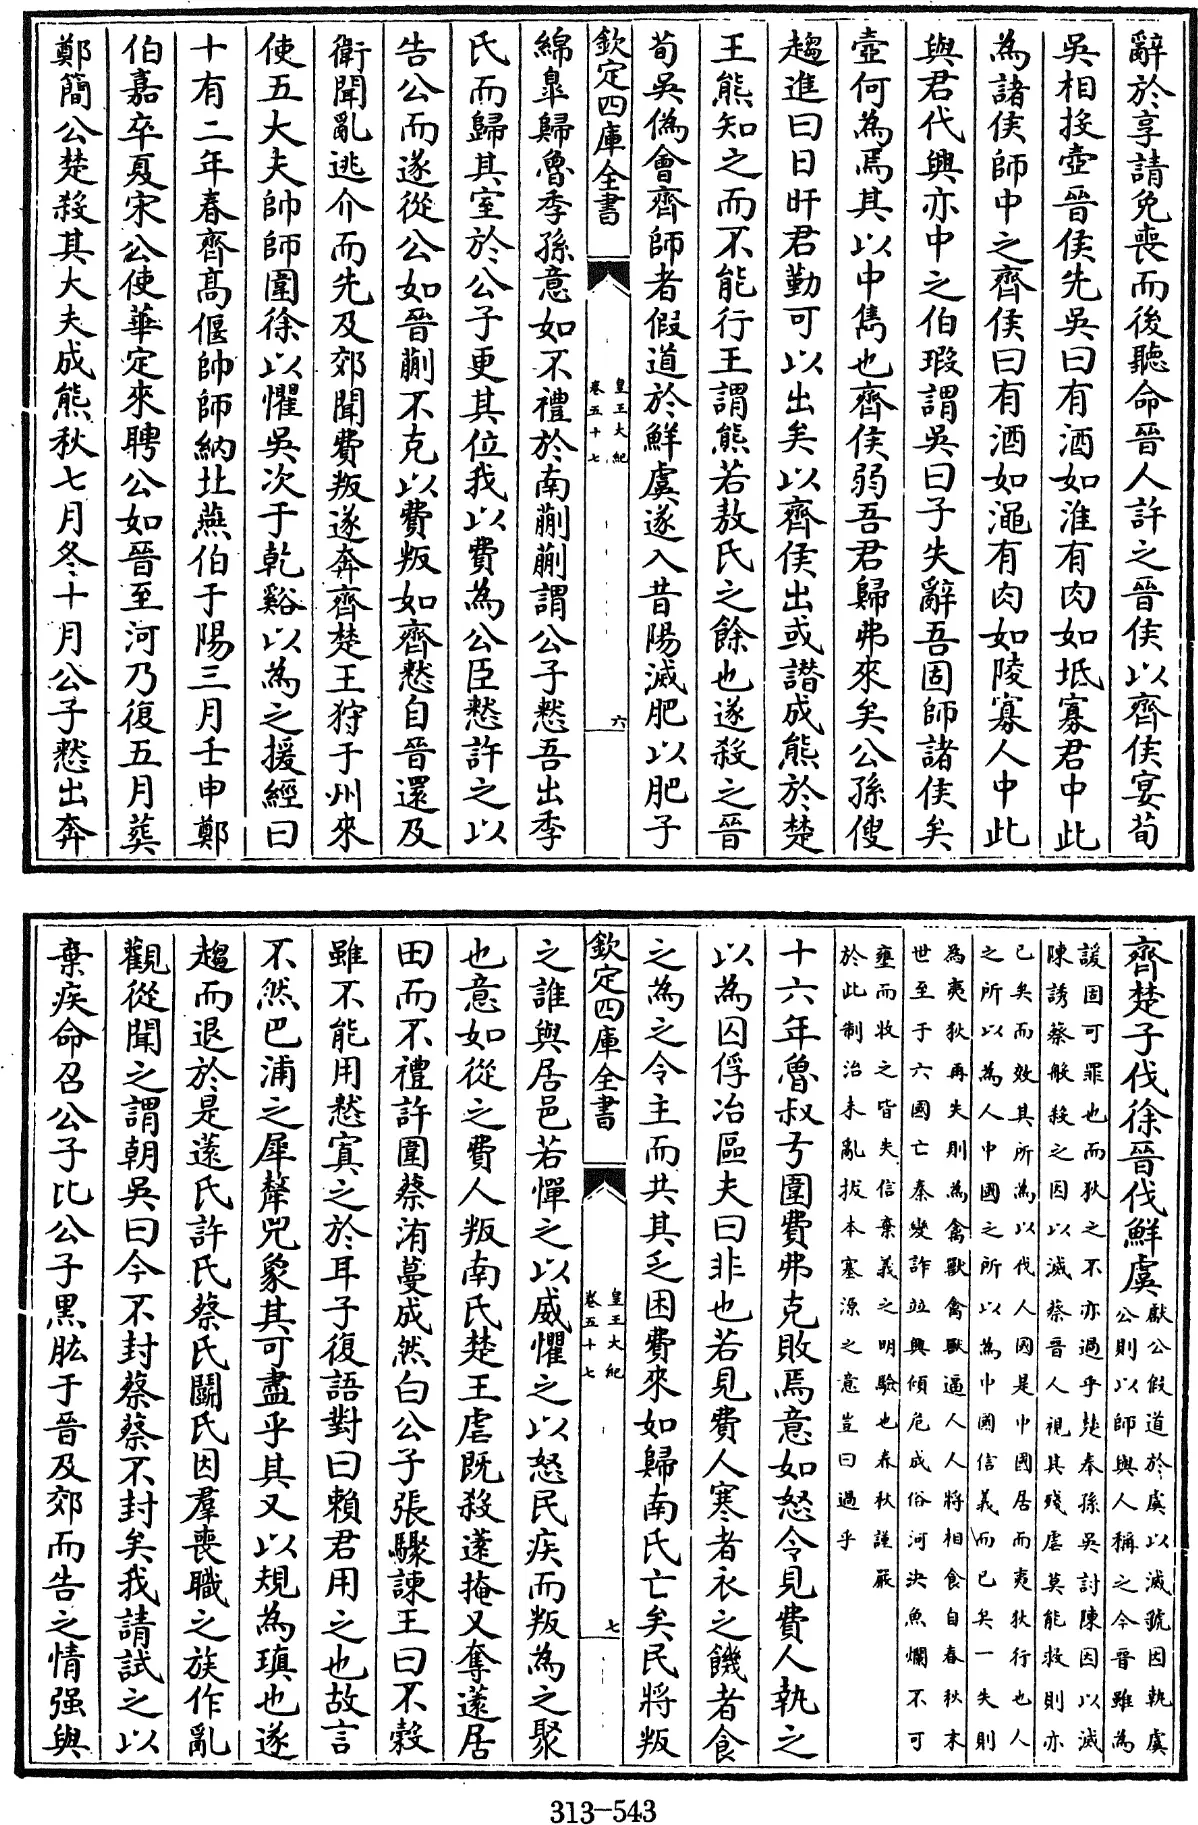 辭於享請免喪而後聽命晉人許之晉侯以齊侯宴荀
吳相投壺晉侯先吳曰有酒如淮有肉如坻寡君中此
為諸侯師中之齊侯曰有酒如澠有肉如陵寡人中此
與君代興亦中之伯瑕謂吳曰子失辭吾固師諸侯矣
壺何為焉其以中雋也齊侯弱吾君歸弗來矣公孫傁
趨進曰日旰君勤可以出矣以齊侯出或譖成熊於楚
王熊知之而不能行王謂熊若敖氏之餘也遂殺之晉
荀吳偽會齊師者假道於鮮虞遂入昔陽滅肥以肥子
欽定四庫全書
皇王大紀
卷五十七
六
綿臯歸魯季孫意如不禮於南蒯蒯謂公子憖吾出季
氏而歸其室於公子更其位我以費為公臣憖許之以
告公而遂從公如晉蒯不克以費叛如齊憖自晉還及
衛聞亂逃介而先及郊聞費叛遂奔齊楚王狩于州來
使五大夫帥師圍徐以懼吳次于乾谿以為之援經曰
十有二年春齊高偃帥師納北燕伯于陽三月壬申鄭
伯嘉卒夏宋公使華定來聘公如晉至河乃復五月葬
鄭簡公楚殺其大夫成熊秋七月冬十月公子憖出奔
齊楚子伐徐晉伐鮮虞
獻公假道於虞以滅虢因執虞
公則以師與人稱之今晉雖為
諼固可罪也而狄之不亦過乎楚奉孫吳討陳因以滅
陳誘蔡般殺之因以滅蔡晉人視其殘虐莫能救則亦
已矣而效其所為以伐人國是中國居而夷狄行也人
之所以為人中國之所以為中國信義而已矣一失則
為夷狄再失則為禽獸禽獸逼人人將相食自春秋末
世至于六國亡秦變詐並興傾危成俗河決魚爛不可
壅而收之皆失信棄義之明驗也春秋謹嚴
於此制治未亂拔本塞源之意豈曰過乎
十六年魯叔弓圍費弗克敗焉意如怒令見費人執之
以為囚俘冶區夫曰非也若見費人寒者衣之饑者食
之為之令主而共其乏困費來如歸南氏亡矣民將叛
欽定四庫全書
皇王大紀
卷五十七
七
之誰與居邑若憚之以威懼之以怒民疾而叛為之聚
也意如從之費人叛南氏楚王虐既殺薳掩又奪薳居
田而不禮許圍蔡洧蔓成然白公子張驟諫王曰不穀
雖不能用憖寘之於耳子復語對曰賴君用之也故言
不然巴浦之犀犛兕象其可盡乎其又以規為瑱也遂
趨而退於是薳氏許氏蔡氏鬭氏因羣喪職之族作亂
觀從聞之謂朝吳曰今不封蔡蔡不封矣我請試之以
棄疾命召公子比公子黑肱于晉及郊而告之情强與
313-543